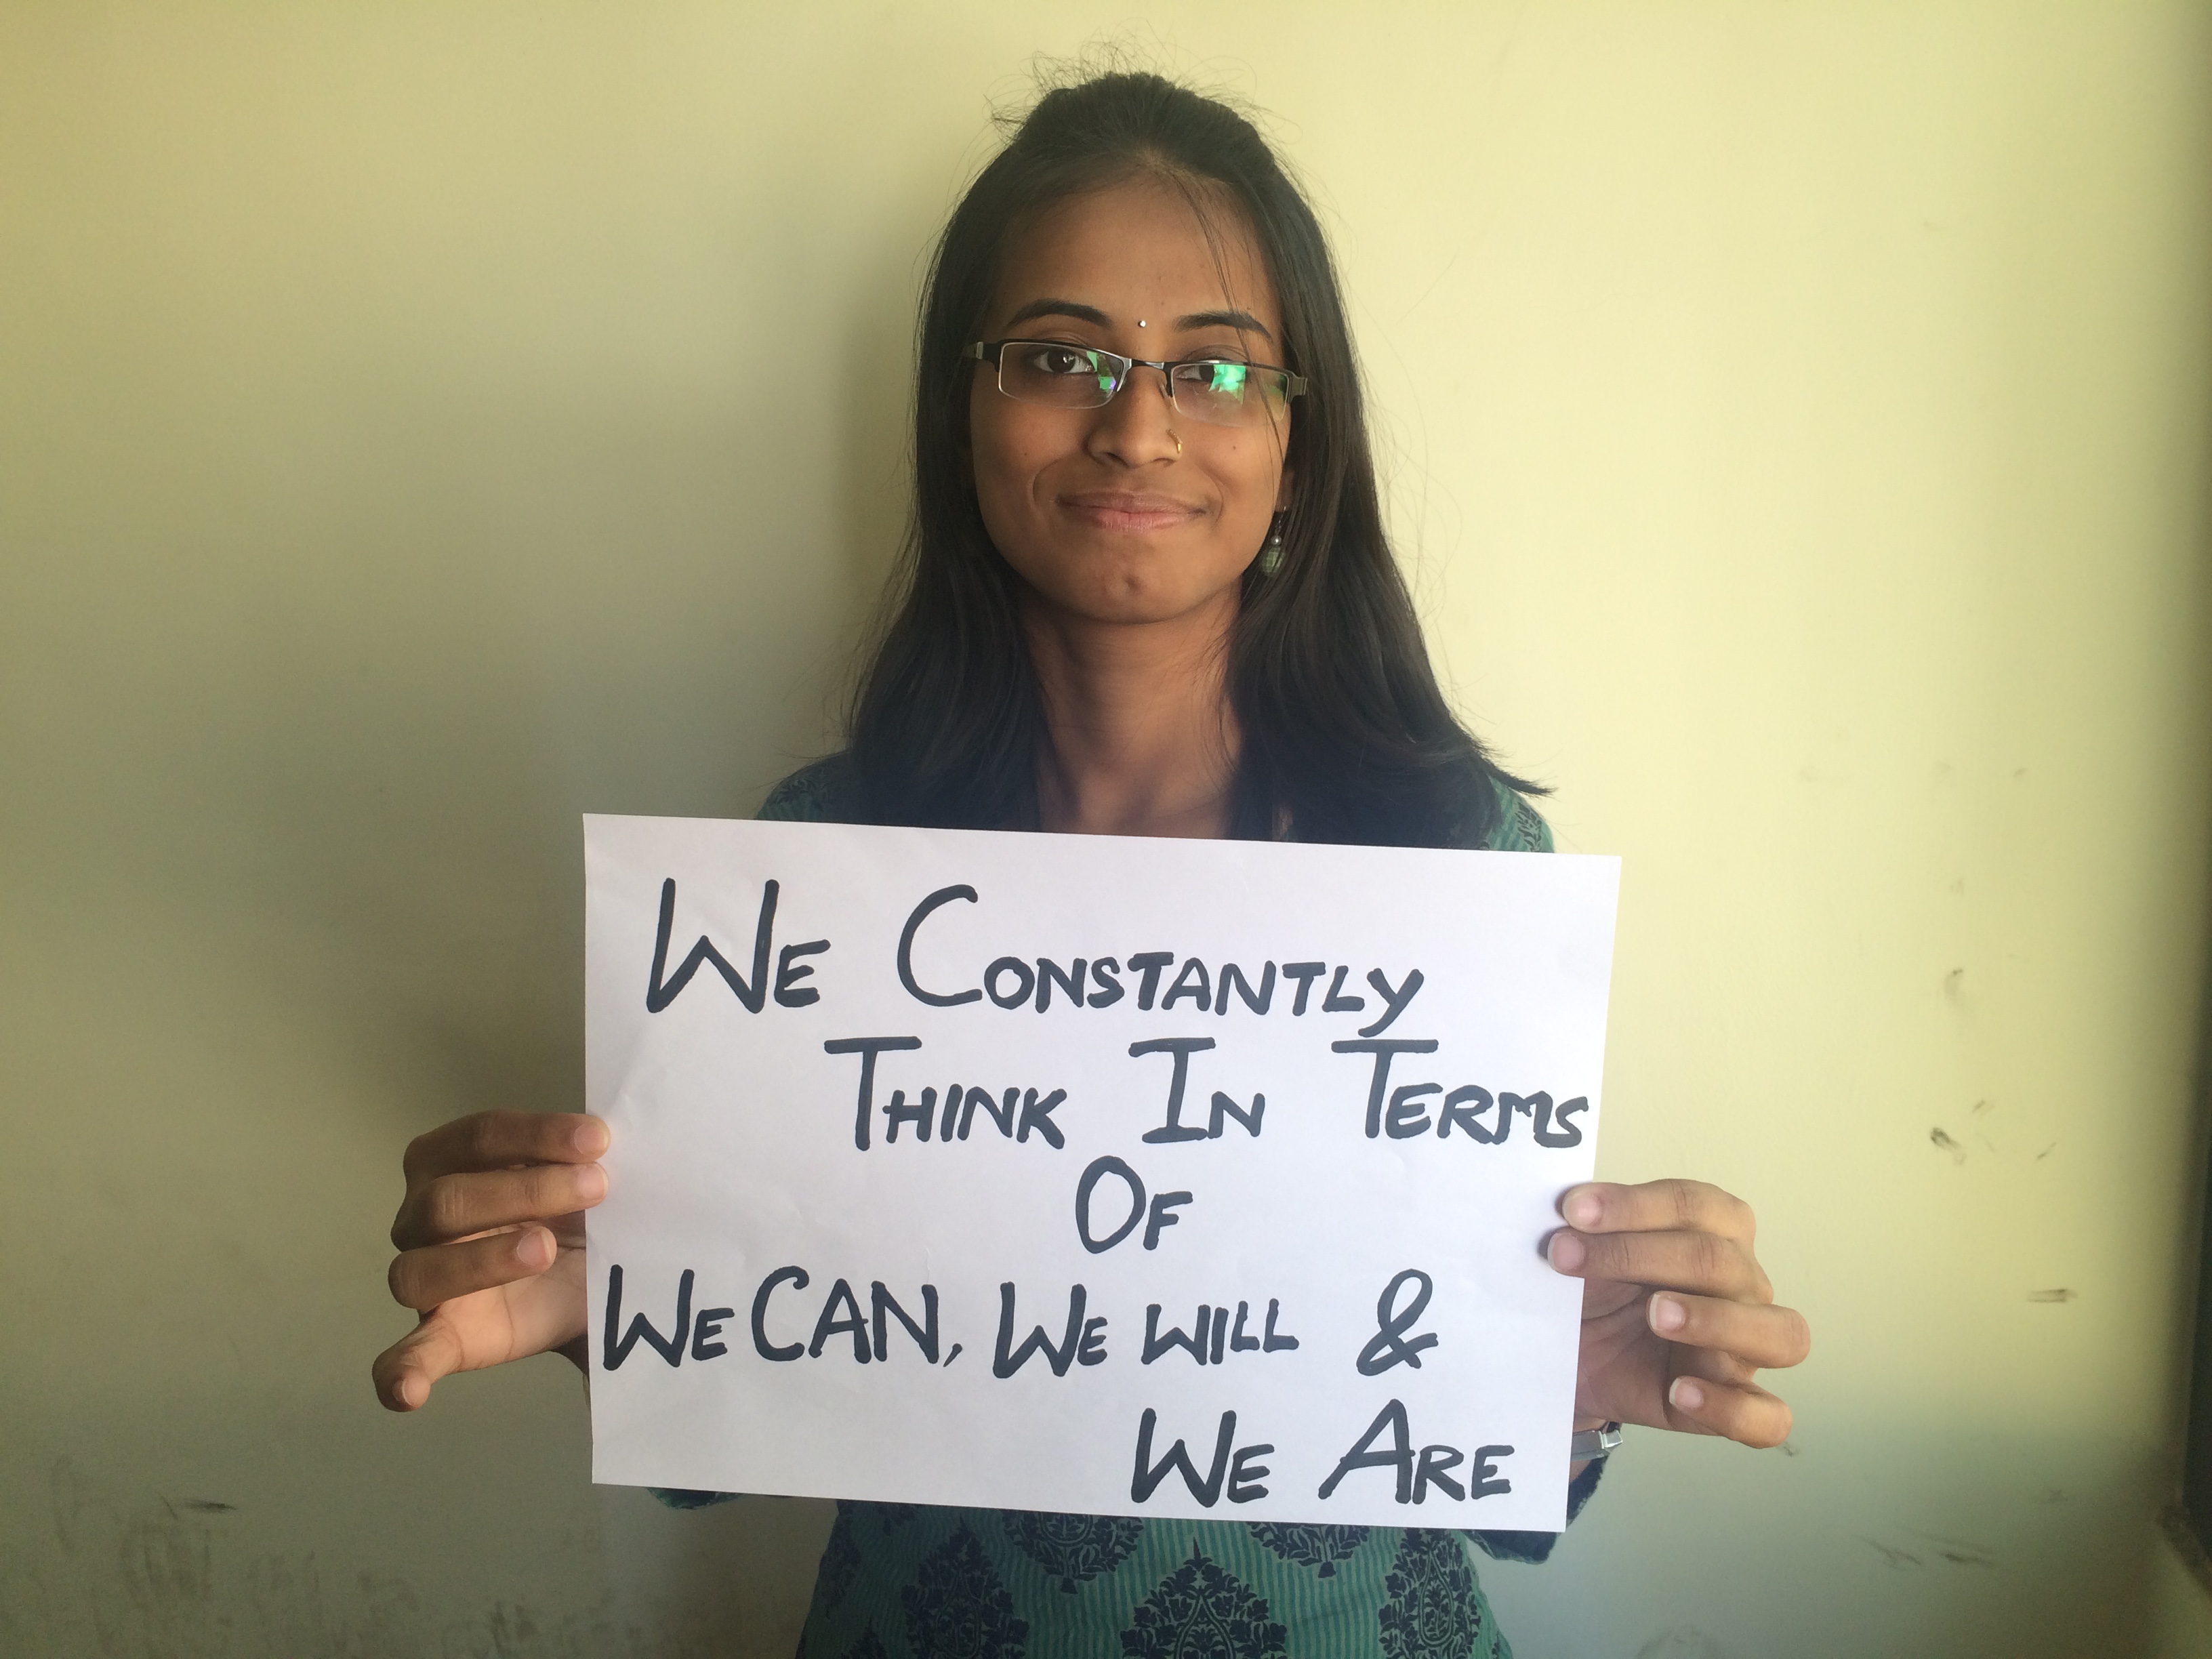 We Constantly
Think In Terms
Of
We CAN, We will &
We Are